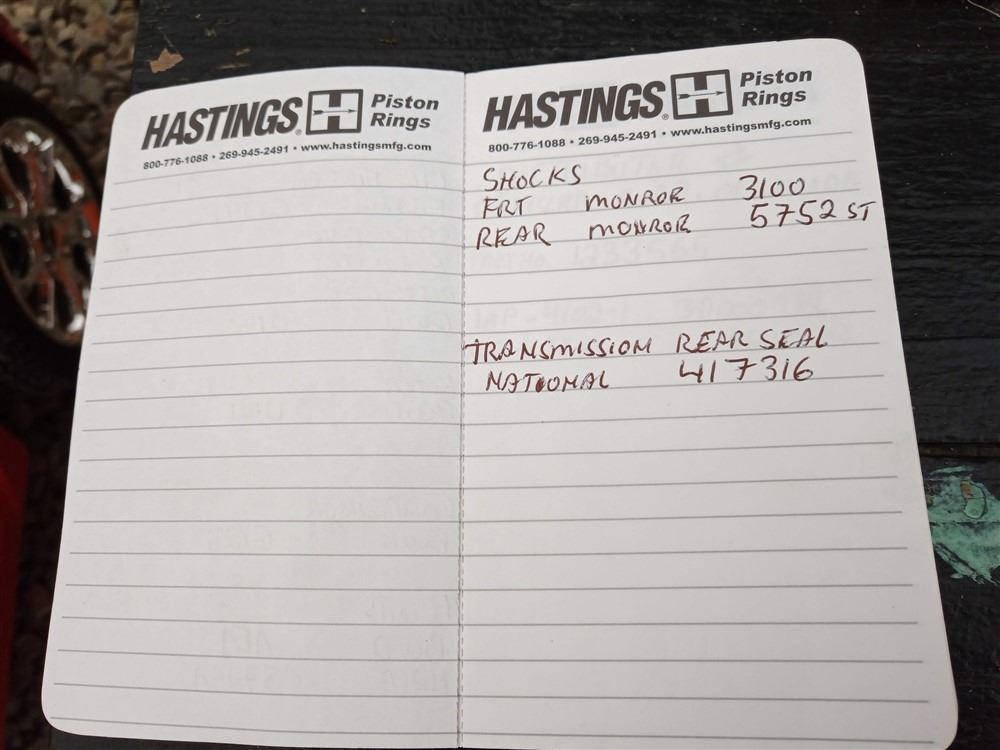 HASTINGS® Piston Rings
800-776-1088 • 269-945-2491 • www.hastingsmfg.com
HASTINGS® Piston Rings
800-776-1088 • 269-945-2491 • www.hastingsmfg.com
SHOCKS
FRT MONROE 3100
REAR MONROE 5752 ST
TRANSMISSION REAR SEAL
NATIONAL 417316